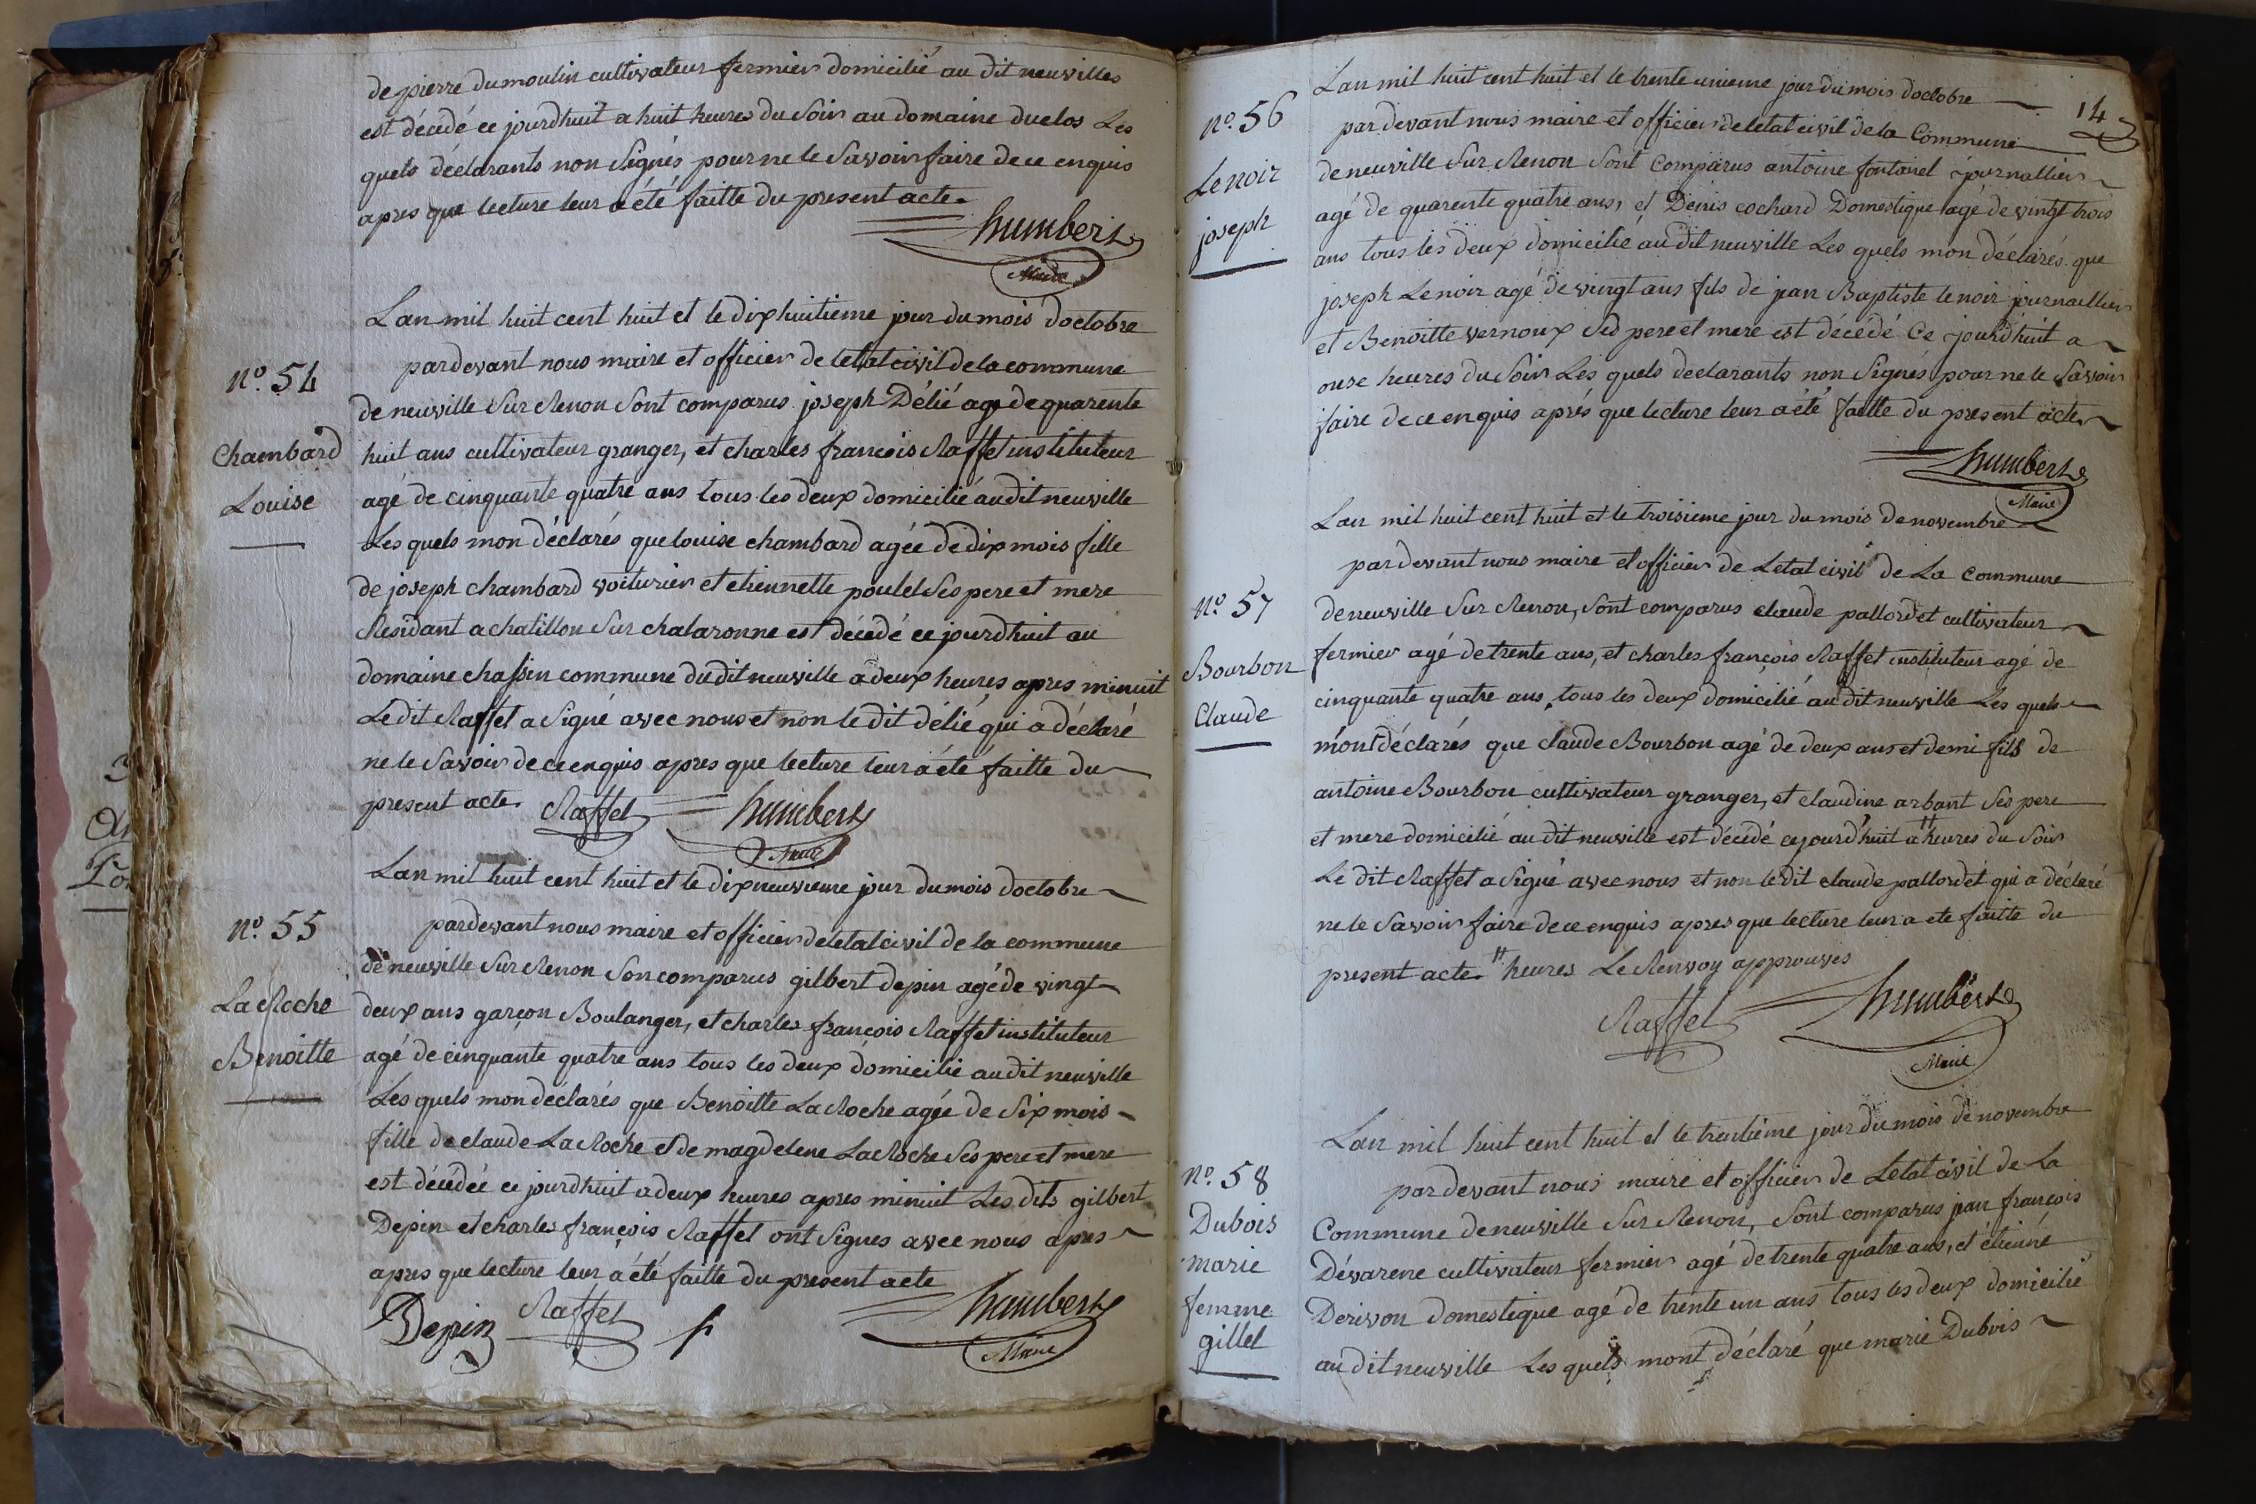 de pierre dumoulin cultivateur fermier domicilié au dit neuvilles
est décédé ce jourdhuit a huit heures du Soir au domaine duclos Les
quels déclarants non Signés pour ne le Savoir faire de ce enquis
apres que lecture leur a été faitte du present acte.
humbert
Maire
Lan mil huit cent huit et le dixhuitieme jour du mois doctobre
pardevant nous maire et officier de letat civil de la commune
nº. 54
de neuville Sur Renon Sont comparus joseph Délié agé de quarente
Chambard
huit ans cultivateur granger, et charles françois Raffet instituteur
Louise
agé de cinquante quatre ans tous les deux domicilié au dit neuville
Les quels mon déclarés que louise chambard agée de dix mois fille
de joseph chambard voiturier et etiennette poulet Ses pere et mere
Residant a chatillon Sur chalaronne est décédé ce jourdhuit au
domaine chassin commune du dit neuville a deux heures apres minuit
Le dit Raffet a Signé avec nous et non le dit délié qui a déclaré
ne le Savoir de ce enquis apres que lecture leur a été faitte du
present acte. Raffet humbert
Maire
Lan mil huit cent huit et le dixneuvieme jour du mois doctobre
nº. 55
pardevant nous maire et officier de letat civil de la commune
de neuville Sur Renon Son comparus gilbert depin agé de vingt
La Roche
deux ans garçon Boulanger, et charles françois Raffet instituteur
Benoitte
agé de cinquante quatre ans tous les deux domicilié au dit neuville
Les quels mon déclarés que Benoitte La Roche agée de Six mois
fille de claude La Roche et de magdelene La Roche Ses pere et mere
est décédée ce jourdhuit a deux heures apres minuit Les dits gilbert
Depin et charles françois Raffet ont Signes avec nous apres
apres que lecture leur a été faitte du present acte
Depin Raffet humbert
Maire
14
Lan mil huit cent huit et le trente unieme jour du mois doctobre
nº. 56
par devant nous maire et officier de letat civil de la Commune
Lenoir
de neuville Sur Renon Sont Comparus antoine fontanel journallier
joseph
agé de quarente quatre ans, et Denis cochard Domestique agé de vingt trois
ans tous les deux domicilié au dit neuville Les quels mon déclarés que
joseph Lenoir agé de vingt ans fils de jean Baptiste lenoir journallier
et Benoitte vernoux Ses pere et mere est décédé Ce jourdhuit a
onse heures du Soir Les quels declarants non Signés pour ne le Savoir
faire de ce enquis aprés que lecture leur a été faitte du present acte
humbert
Maire
Lan mil huit cent huit et le troisieme jour du mois de novembre
par devant nous maire et officier de Letat civil de La Commune
nº 57
de neuville Sur Renon, Sont comparus claude pallordet cultivateur
Bourbon
fermier agé de trente ans, et charles françois Raffet instituteur agé de
Claude
cinquante quatre ans, tous les deux domicilié au dit neuville Les quels
mont déclarés que claude Bourbon agé de deux ans et demi fils de
antoine Bourbon cultivateur granger, et claudine arbant Ses pere
et mere domicilié au dit neuville est décédé cejourdhuit a # heures du Soir
Le dit Raffet a Signé avec nous et non le dit claude pallordét qui a déclaré
ne le Savoir faire de ce enquis apres que lecture leur a ete faitte du
present acte. # heures Le Renvoy approuves
Raffet humbert
Maire
Lan mil huit cent huit et le trentième jour du mois de novembre
nº. 58
par devant nous maire et officier de Letat civil de La
Dubois
Commune de neuville Sur Renon, Sont comparus jean françois
marie
Dévarene cultivateur fermier agé de trente quatre ans, et étienne
femme
Derivon domestique agé de trente un ans tous les deux domicilié
gillet
au dit neuville Les quels mont déclaré que marie Dubois